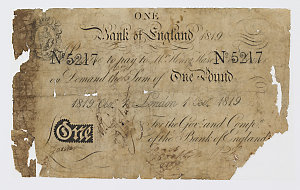 ONE
Bank of England 1819
No 5217 to pay to Mr. Henry Hase No 5217
on Demand the Sum of One Pound
1819 Oct. London 1 Oct. 1819
For the Govr. and Compa.
One
of the Bank of England